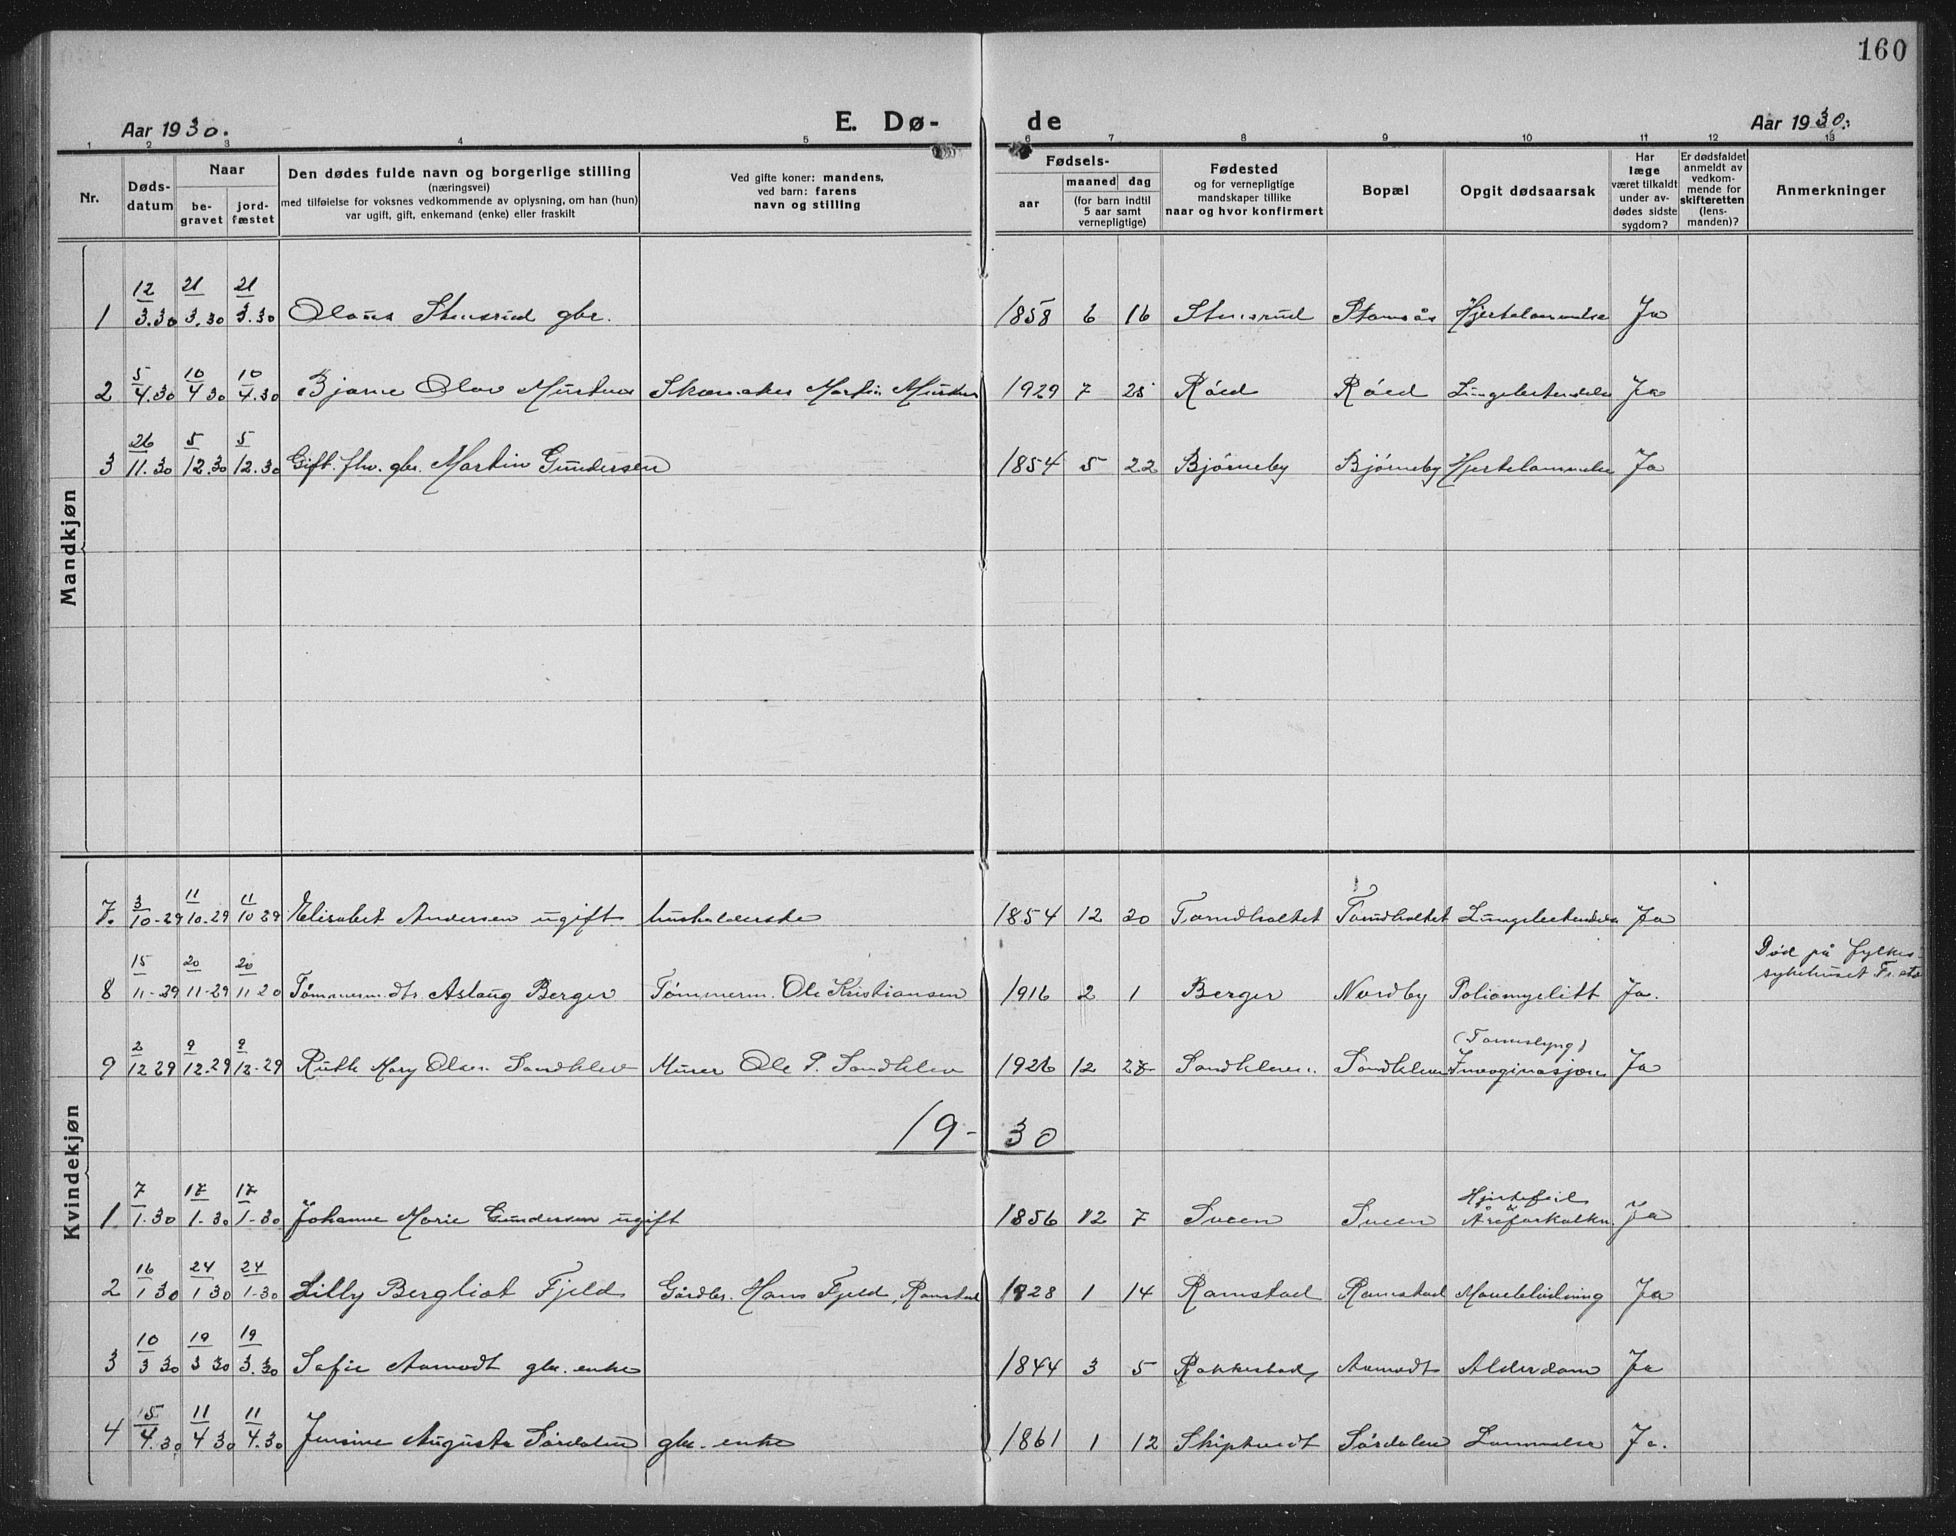 160
Aar 1930. E. Dø- de Aar 1930.
1 2 3 4 5 6 7 8 9 10 11 12 13
Nr. Døds-datum Naar be-gravet jord-fæstet Den dødes fulde navn og borgerlige stilling (næringsvei) med tilføielse for voksnes vedkommende av oplysning, om han (hun) var ugift, gift, enkemand (enke) eller fraskilt Ved gifte koner: mandens, ved barn: farens navn og stilling Fødsels- aar maaned dag (for barn indtil 5 aar samt vernepligtige) Fødested og for vernepligtige mandskaper tillike naar og hvor konfirmert Bopæl Opgit dødsaarsak Har læge været tilkaldt under av-dødes sidste sygdom? Er dødsfaldet anmeldt av vedkom-mende for skifteretten (lens-manden)? Anmerkninger
Mandkjøn
1 12/3.30 21/3.30 21/3.30 Olaus Stensrud gbr. 1858 6 16 Stensrud Hjertelammelse Ja
2 5/4.30 10/4 30 10/4.30 Bjarne Olav Skomaker Martin 1929 7 Röed Röed Lungebetendelse Ja
3 26/11.30 5/12.30 5/12.30 Gift. fhv. gbr. Martin Gundersen 1854 5 22 Bjørneby Bjørneby Hjertelammelse Ja
Kvindekjøn
7. 3/10-29 11/10-29 11/10 29 Elisabet Andersen ugift. husholderske 1854 12 20 Tomdholtet Tomdholtet Lungebetendelse Ja
8 15/11-29 20/11-29 20/11 20 Tømmerm. dtr. Aslaug Berger Tømmerm. Ole Kristiansen 1916 2 1 Berger Nordby Poliomyelitt Ja. Død på fylkes-
sykehuset Fr.sta
9 2/12 29 9/12-29 9/12-29 Ruth Mary Olsen Sandklev Murer Ole P. Sandklev 1926 12 27 Sandkleven Sandkleven (Tarmslyng) Invaginasjon Ja
19-30
1 7/1-30 17/1-30 17/1-30 Johanne Marie Gundersen ugift 1856 12 7 Sveen Sveen Hjertefeil & Åreforkalkn. Ja
2 16/1 30 24/1 30 24/1-30 Lilly Bergliot Fjeld Gårdbr. Hans Fjeld, Ramstad 1928 1 14 Ramstad Ramstad Ja
3 10/3 30 19/3 30 19/3.30 Sofie Aamodt gbr. enke 1844 3 5 Rakkestad Aamodt Alderdom Ja
4 15/4.30 11/4 30 11/4.30 Jensine Augusta Sørdalen gbr. enke 1861 1 12 Skiptvedt Sørdalen Lammelse Ja.